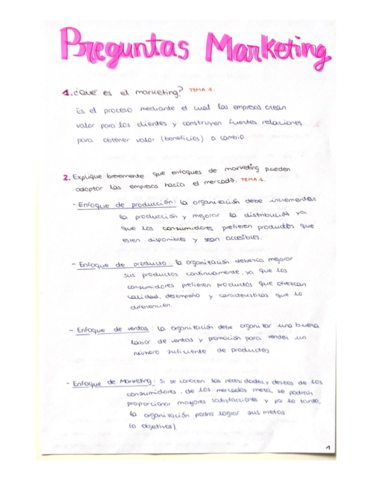 Preguntas Marketing.
1. ¿Qué es el marketing? TEMA 1.
Es el proceso mediante el cual las empresas crean
valor para los clientes y construyen fuertes relaciones
para obtener valor (beneficios) a cambio.
2. Explique brevemente que enfoques de marketing pueden
adoptar las empresas hacia el mercado. TEMA 1.
- Enfoque de producción: la organización debe incrementar
la producción y mejorar la distribución ya
que los consumidores prefieren productos que
esten disponibles y sean accesibles.
- Enfoque de producto: la organización debería mejorar
sus productos continuamente, ya que los
consumidores prefieren productos que ofrezcan
calidad, desempeño y características que lo
diferencien.
- Enfoque de ventas: la organización debe organizar una buena
labor de ventas y promoción para vender un
número suficiente de productos
- Enfoque de Marketing: Si se conocen las necesidades y deseos de los
consumidores de los mercados meta, se podrán
proporcionar mayores satisfacciones y por lo tanto,
la organización podrá lograr sus metas
(o objetivos)
1